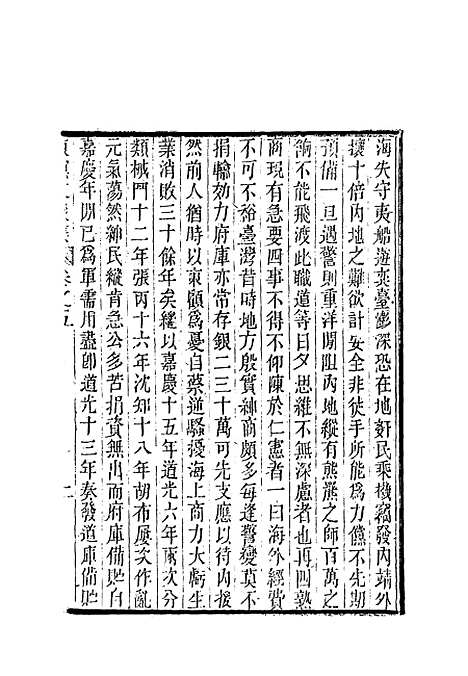 海失守夷船遊奕臺澎深恐在地奸民乘機竊發內靖外
攘十倍內地之難欲計安全非徒手所能為力儻不先期
預備一旦遇警則重洋間阻內地縱有熊羆之師百萬之
餉不能飛渡此職道等日夕思維不無深慮者也再四熟
商現有急要四事不得不仰陳於仁憲者一曰海外經費
不可不裕臺灣昔時地方殷實紳商頗多每逢警變莫不
捐輸効力府庫亦常存銀二三十萬可先支應以待內援
然前人猶時以東顧為憂自蔡逆騷擾海上商力大虧生
業消敗三十餘年矣繼以嘉慶十五年道光六年兩次分
類械鬥十二年張丙十六年沈知十八年胡布屢次作亂
元氣蕩然紳民縱肯急公多苦捐資無出而府庫備貯自
嘉慶年間已為軍需用盡卽道光十三年奏發道庫備貯